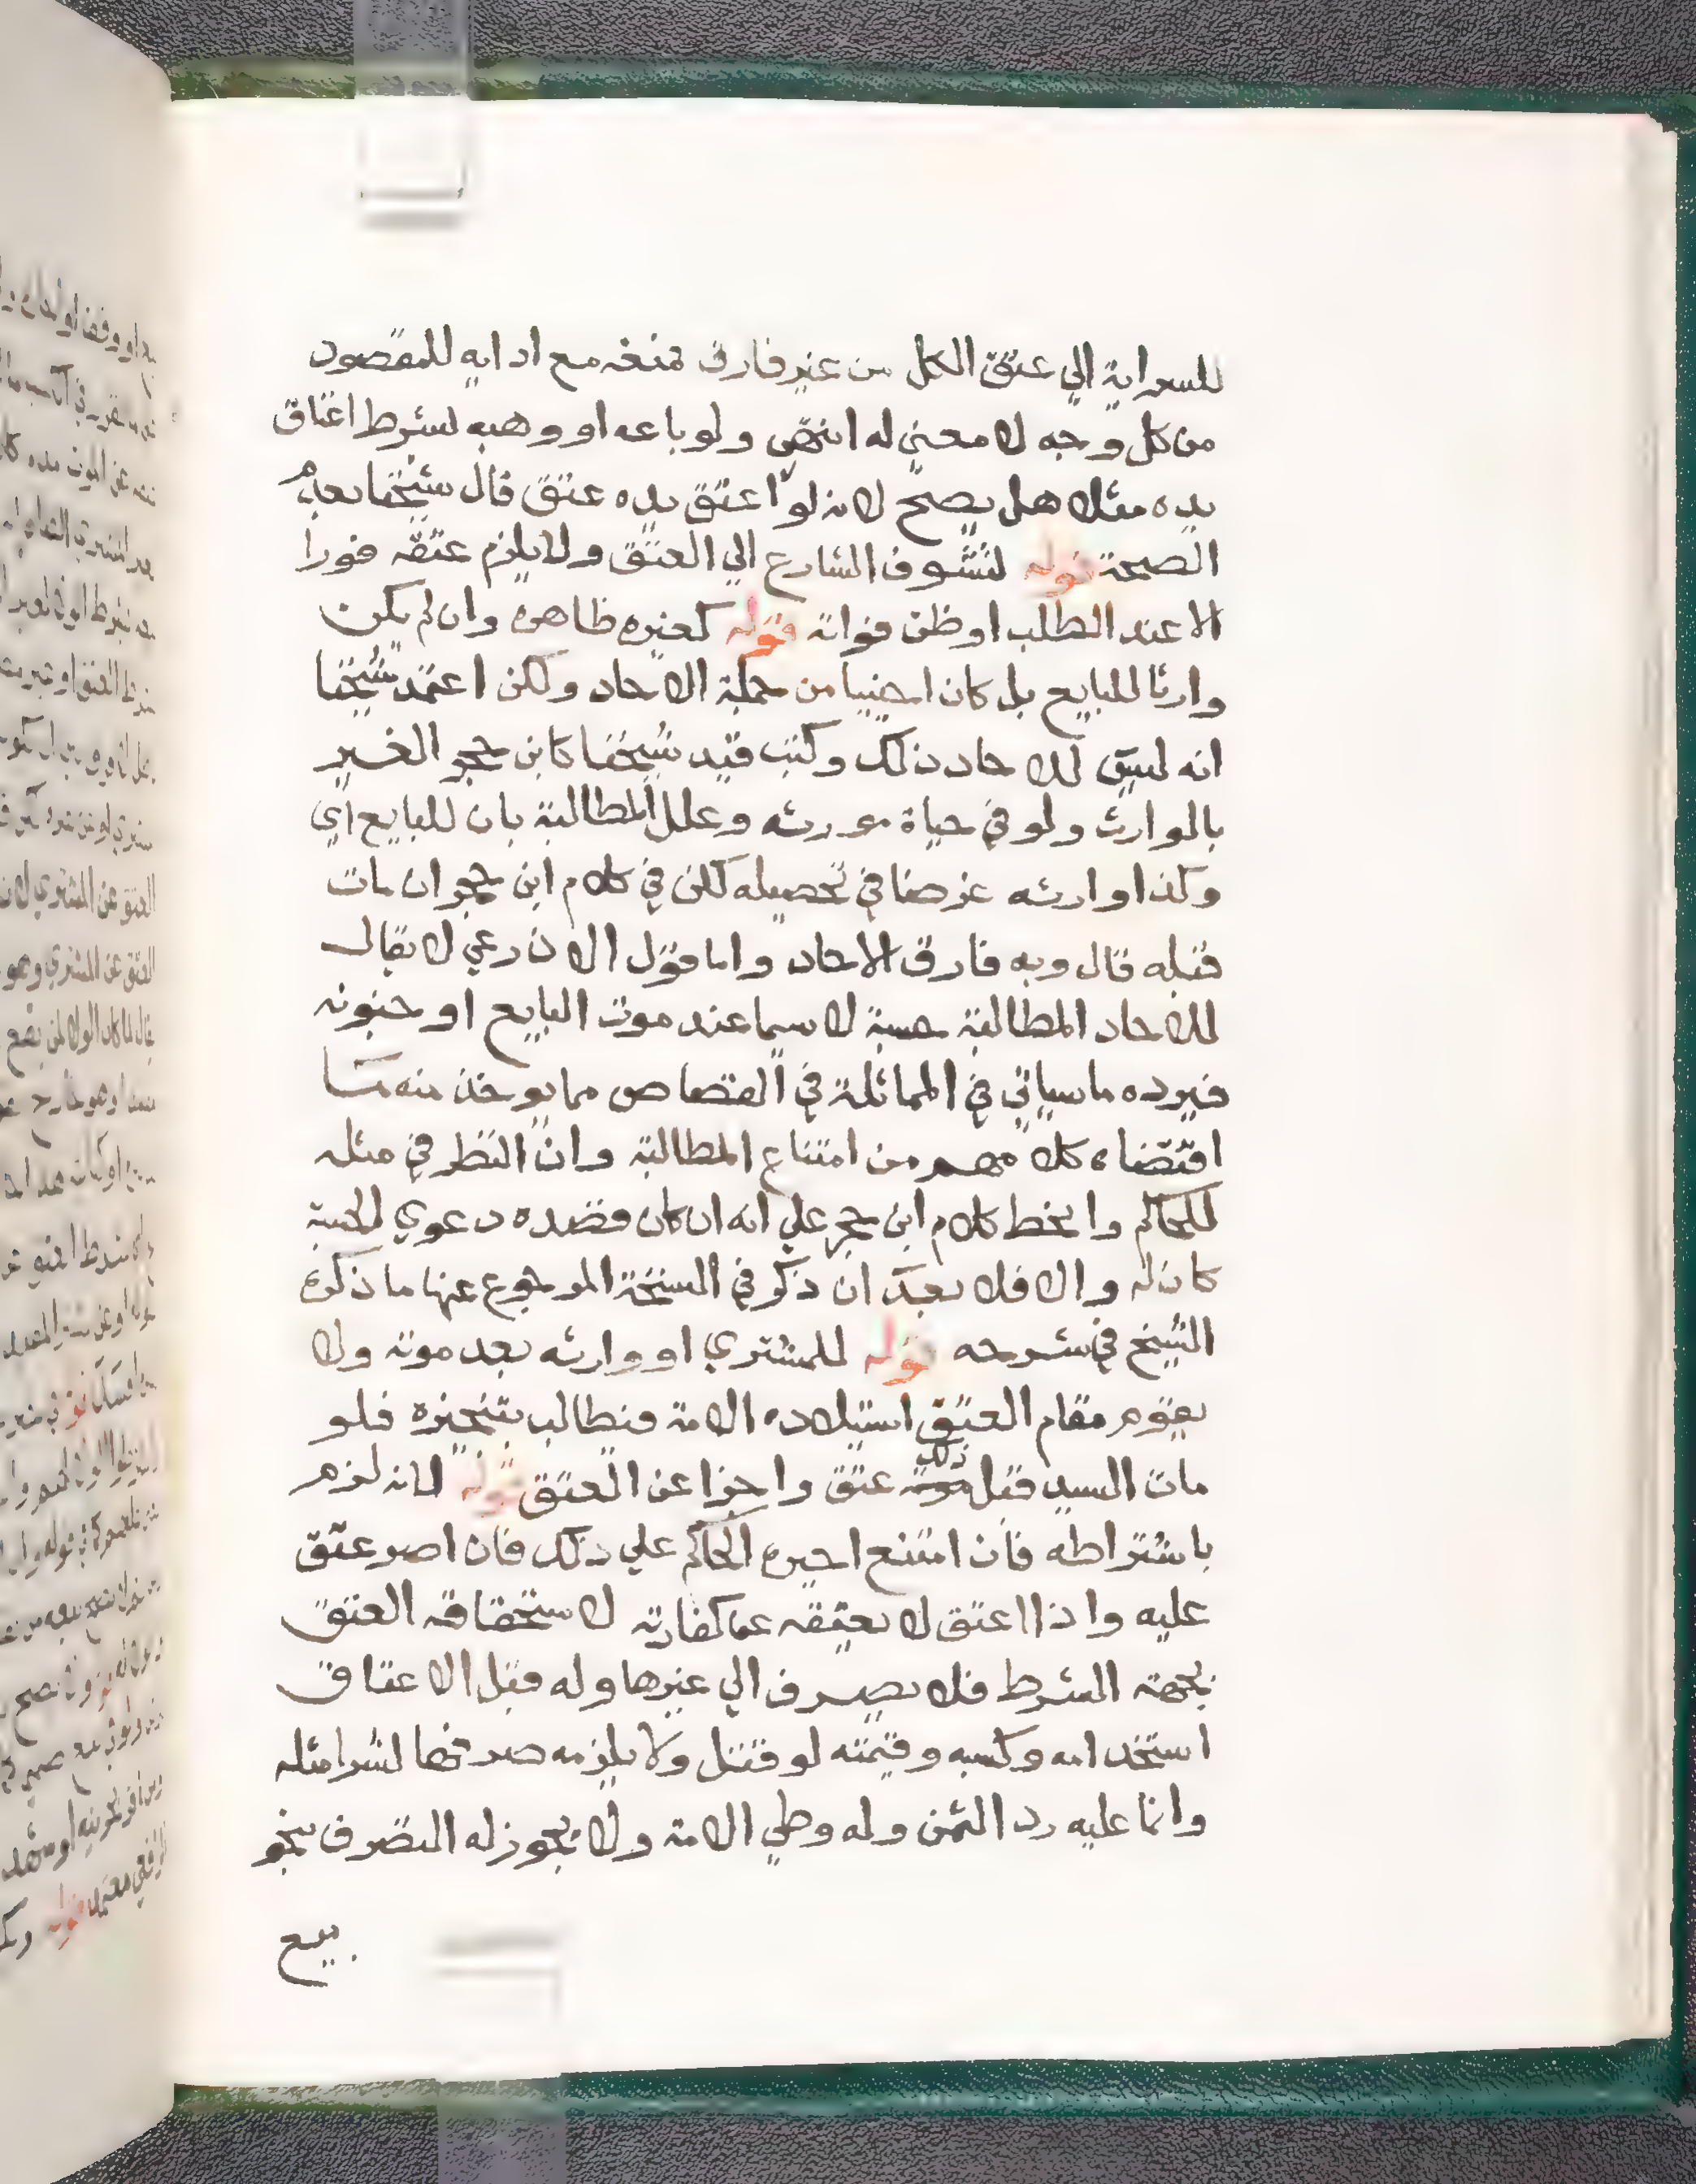 للسراية الي عتق الكل من غير فارق فمنعه مع ادايه للمقصود
من كل وجه لا معني له انتهي ولو باعه او وهبه بشرط اعتاق
يده مثلا هل يصح لانه لو اعتق يده عتق قال شيخنا بعدم
الصحة قوله لتشوف الشارع الي العتق ولا يلزم عتقه فورا
الا عند الطلب او ظن فواته قوله كغيره ظاهره وان لم يكن
وارثا للبايع بل كان اجنبيا من جملة الاحاد ولكن اعتمد شيخنا
انه ليس للاحاد ذلك وكتب قيد شيخنا كابن حجر الغير
بالوارث ولو في حياة مورثه وعلل المطالبة بان للبايع اي
وكذا وارثه غرضا في تحصيله لكن في كلام ابن حجر ان مات
قبله قال وبه فارق الاحاد واما قول الاذرعي لا يقال
للاحاد المطالبة حسبة لا سيما عند موت البايع او جنونه
فيرده ما سياتي في المماثلة في القصاص مما يوخذ منه مسا
اقتضاه كلامهم من امتناع المطالبة وان النظر في مثله
للحاكم وانحط كلام ابن حجر علي انه ان كان قصده دعوي الحسبة
كان له والا فلا بعد ان ذكر في النسخة المرجوع عنها ما ذكره
الشيخ في شرحه قوله للمشتري او وارثه بعد موته ولا
يقوم مقام العتق استيلاده الامة فيطالب بتنجيزه فلو
مات السيد قبل ذلك عتق واجزا عن العتق قوله لانه لزم
باشتراطه فان امتنع اجبره الحاكم علي ذلك فان اصر عتق
عليه واذا اعتق لا يعتقه عما كفارته لاستحقاقه العتق
بجهة الشرط فلا يصرف الي غيرها وله قبل الاعتاق
استخدامه وكسبه وقيمته لو قتل ولا يلزمه صرفها لشرا مثله
وانما عليه رد الثمن وله وطي الامة ولا يجوز له التصرف بنحو
بيع